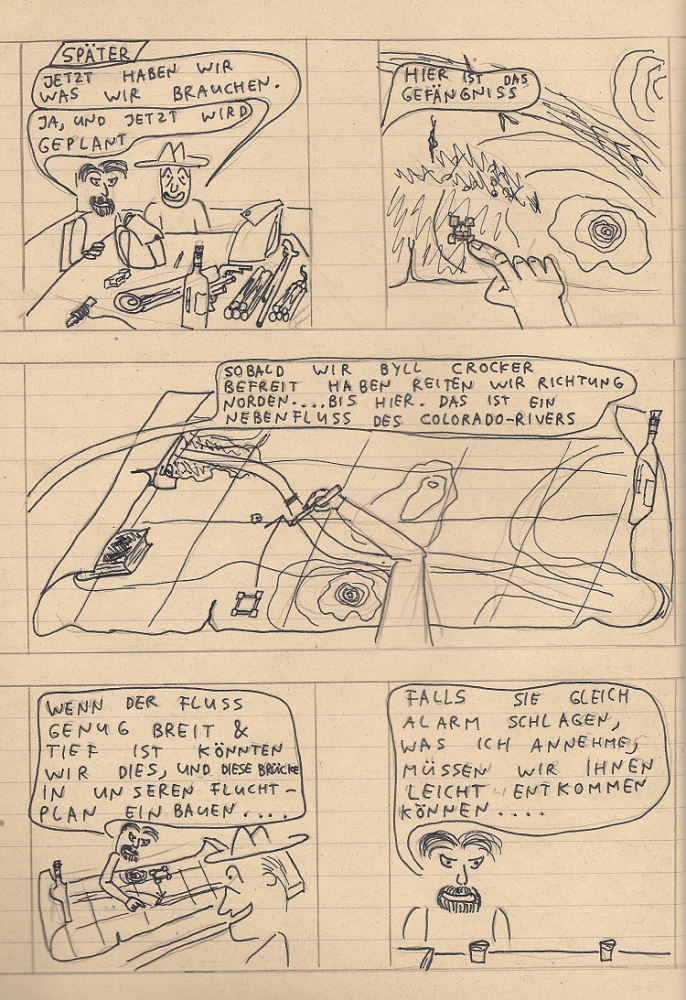 SPÄTER
JETZT HABEN WIR
WAS WIR BRAUCHEN.
JA, UND JETZT WIRD
GEPLANT
HIER IST DAS
GEFÄNGNISS
SOBALD WIR BYLL CROCKER
BEFREIT HABEN REITEN WIR RICHTUNG
NORDEN....BIS HIER. DAS IST EIN
NEBENFLUSS DES COLORADO-RIVERS
WENN DER FLUSS
GENUG BREIT &
TIEF IST KÖNNTEN
WIR DIES, UND DIESE BRÜCKE
IN UNSEREN FLUCHT-
PLAN EINBAUEN....
FALLS SIE GLEICH
ALARM SCHLAGEN,
WAS ICH ANNEHME,
MÜSSEN WIR IHNEN
LEICHT ENTKOMMEN
KÖNNEN....